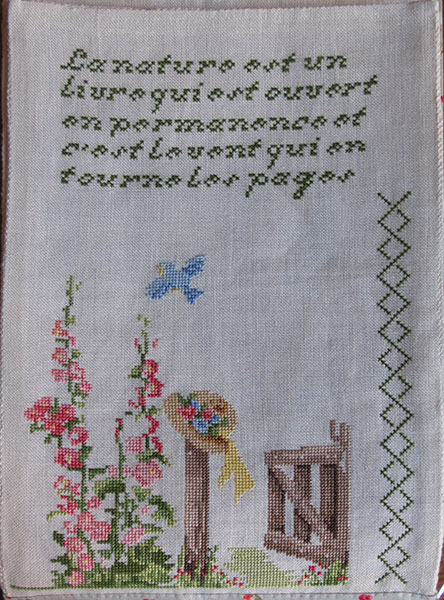 La nature est un
livre qui est ouvert
en permanence et
c'est le vent qui en
tourne les pages